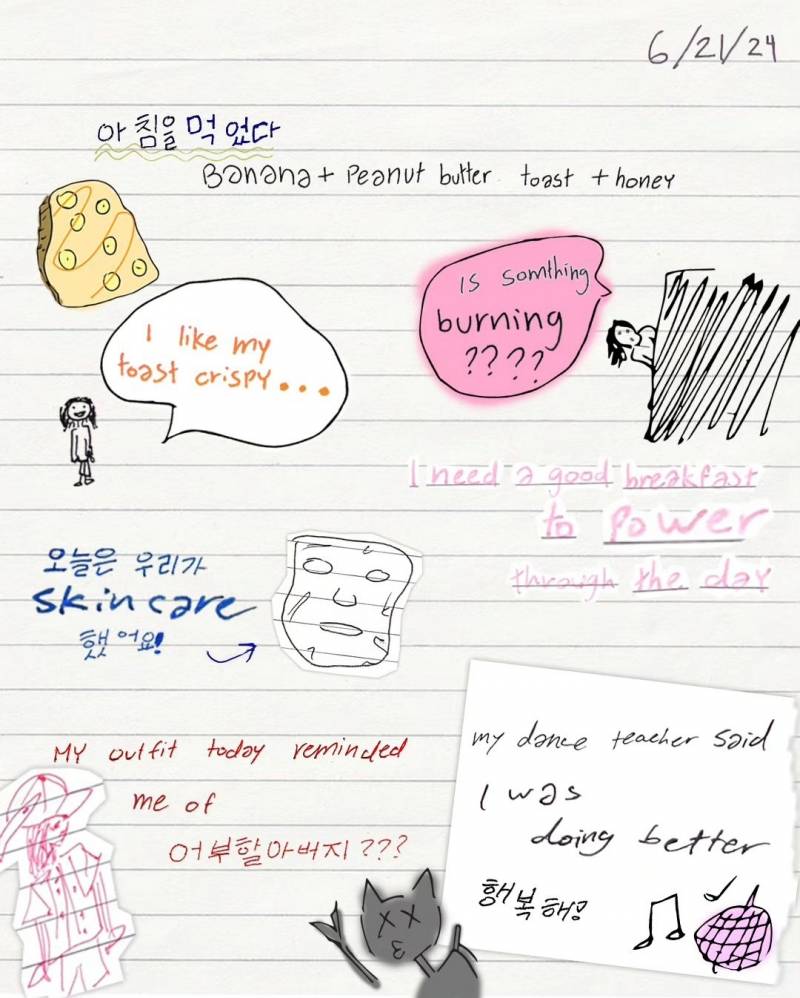 6/21/24
아침을 먹었다
Banana + Peanut butter toast + honey
Is somthing
burning
????
I like my
toast crispy...
I need a good breakfast
to Power
through the day
오늘은 우리가
skincare
했어요!
MY outfit today reminded
me of
어부할아버지???
my dance teacher said
I was
doing better
행복해!